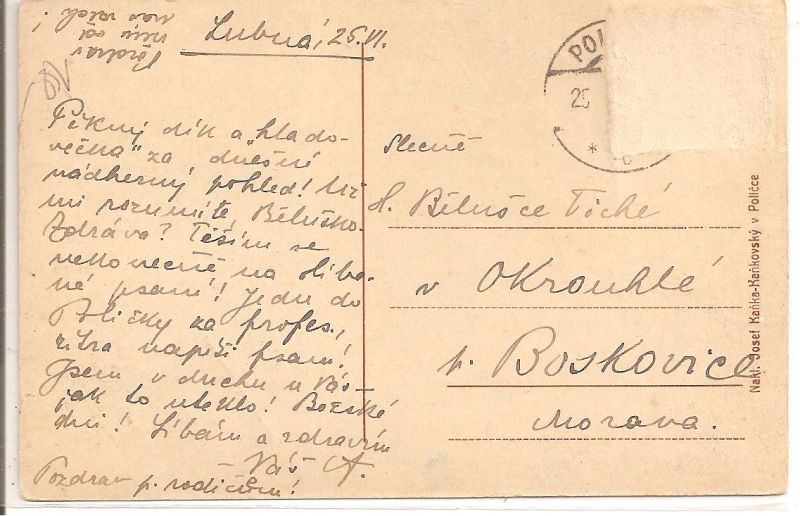 Pozdrav
můj od
nás všech!
Lubná, 25.VI.
Pěkný dík a „hlado-
věčka" za dnešní
nádherný pohled! Už
mi rozumíte, Běluško.
Zdráva? Těším se
nekonečně na slíbe-
né psaní! Jedu do
Poličky za profes.,
zítra napíši psaní!
Jsem v duchu u Vás –
jak to uteklo! Božské
dni! Líbám a zdravím
Váš A.
Pozdrav p. rodičům!
POL
25
Slečně
Bělušce Tiché
v Okrouhlé
p. Boskovice
Morava.
Nakl. Josef Kaňka-Kaňkovský v Poličce